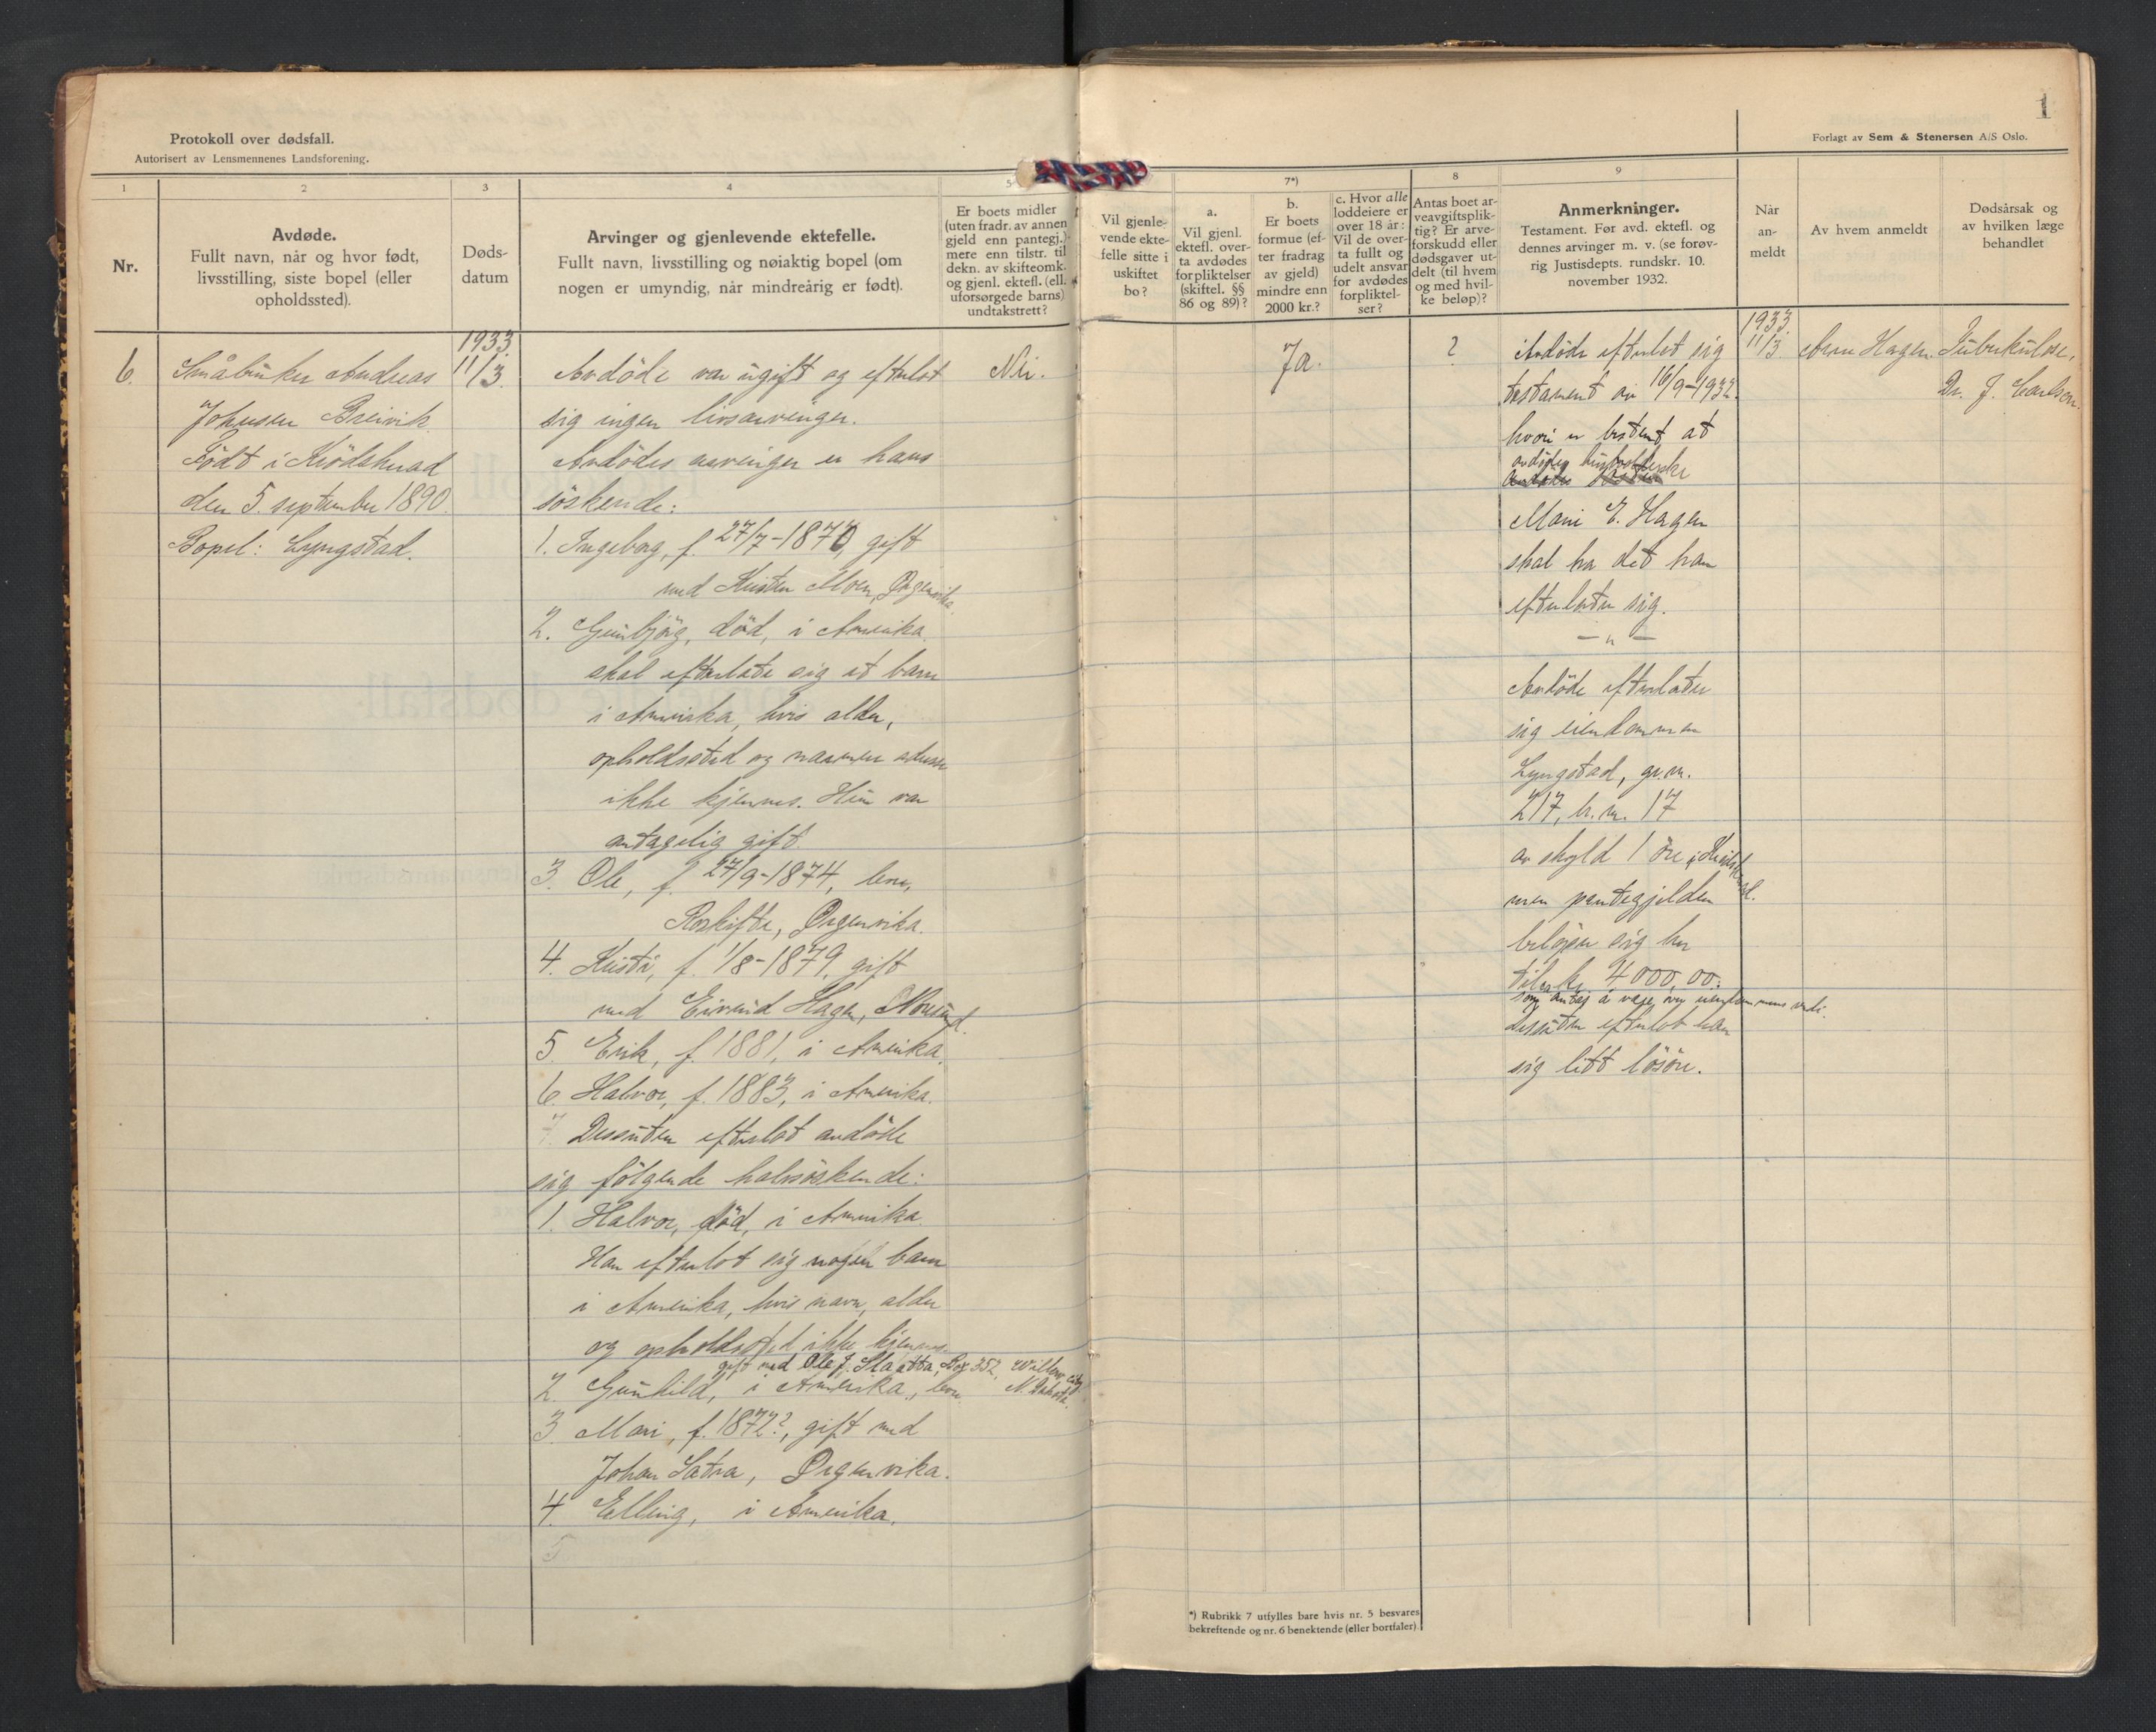 Protokoll over dødsfall.
Autorisert av Lensmennenes Landsforening.
1
Nr.
2
Avdøde.
Fullt navn, når og hvor født,
livsstilling, siste bopel (eller
opholdssted).
3
Døds-
datum
4
Arvinger og gjenlevende ektefelle.
Fullt navn, livsstilling og nøiaktig bopel (om
nogen er umyndig, når mindreårig er født).
5
Er boets midler
(uten fradr. av annen
gjeld enn pantegj.)
mere enn tilstr. til
dekn. av skifteomk.
og gjenl. ektefl. (ell.
uforsørgede barns)
undtakstrett?
6.
Småbruker Andreas
Johnsen Breivik.
Født i Krødsherad
den 5. september 1890.
Bopel: Lyngstad.
1933.
11/3.
Avdøde var ugift og efterlot
sig ingen livsarvinger.
Avdødes arvinger er hans
søskende:
1. Ingeborg, f. 27/7-1870, gift
med Kristen Moen, Ørgenvika.
2. Gunbjørg, død, i Amerika
skal efterlate sig et barn
i Amerika, hvis alder,
opholdssted og navn
ikke kjennes. Hun var
antagelig gift.
3. Ole, f. 27/9-1874,
Roskifte, Ørgenvika.
4. Kristi, f. 1/8-1879, gift
med Eivind Hagen, Noresund.
5. Erik, f. 1881, i Amerika.
6. Halvor, f. 1883, i Amerika.
Dessuten efterlot avdøde
sig følgende halvsøskende:
1. Halvor, død, i Amerika.
Han efterlot sig nogen barn
i Amerika, hvis navn, alder
og opholdssted ikke kjennes.
gift med Ole J. Slaatta, Box 352, Willow City
N. Dakota.
2. Gunhild, i Amerika,
3. Mari, f. 1872?, gift med
Johan Sætra, Ørgenvika.
4. Elling, i Amerika.
5
Nei.
1
Forlagt av Sem & Stenersen A/S Oslo.
Vil gjenle-
vende ekte-
felle sitte i
uskiftet
bo?
7*)
a.
Vil gjenl.
ektefl. over-
ta avdødes
forpliktelser
(skiftel. §§
86 og 89)?
b.
Er boets
formue (ef-
ter fradrag
av gjeld)
mindre enn
2000 kr.?
c. Hvor alle
loddeiere er
over 18 år:
Vil de over-
ta fullt og
udelt ansvar
for avdødes
forpliktel-
ser?
8
Antas boet ar-
veavgiftsplik-
tig? Er arve-
forskudd eller
dødsgaver ut-
delt (til hvem
og med hvil-
ke beløp)?
9
Anmerkninger.
Testament. Før avd. ektefl. og
dennes arvinger m. v. (se forøv-
rig Justisdepts. rundskr. 10.
november 1932.
Når
an-
meldt
Av hvem anmeldt
Dødsårsak og
av hvilken læge
behandlet
Ja.
?
Avdøde efterlot sig
testament av 16/9-1932.
hvori er bestemt at
avdødes husholderske
Mari E. Hagen
skal ha det han
efterlater sig.
— " —
Avdøde efterlater
sig eiendommen
Lyngstad, gr.nr.
217, br.nr. 17
av skyld 1 øre i Krødsherad.
men pantegjelden
beløper sig her
til kr. 4000,00.
som antas å være over eiendommens verdi.
Dessuten efterlot han
sig litt løsøre.
1933.
11/3.
Arne Hagen.
Tuberkulose.
Dr. J. Carlsen.
*) Rubrikk 7 utfylles bare hvis nr. 5 besvares
bekreftende og nr. 6 benektende (eller bortfaler).